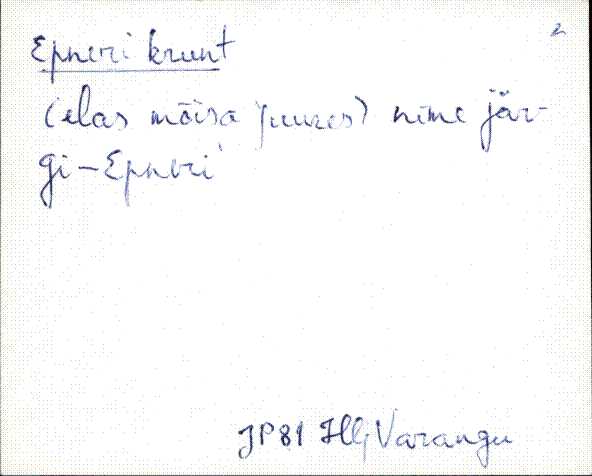 Epneri krunt
(elas mõisa juures) nime jär-
gi – Epneri
JP 81 HlJ Varangu